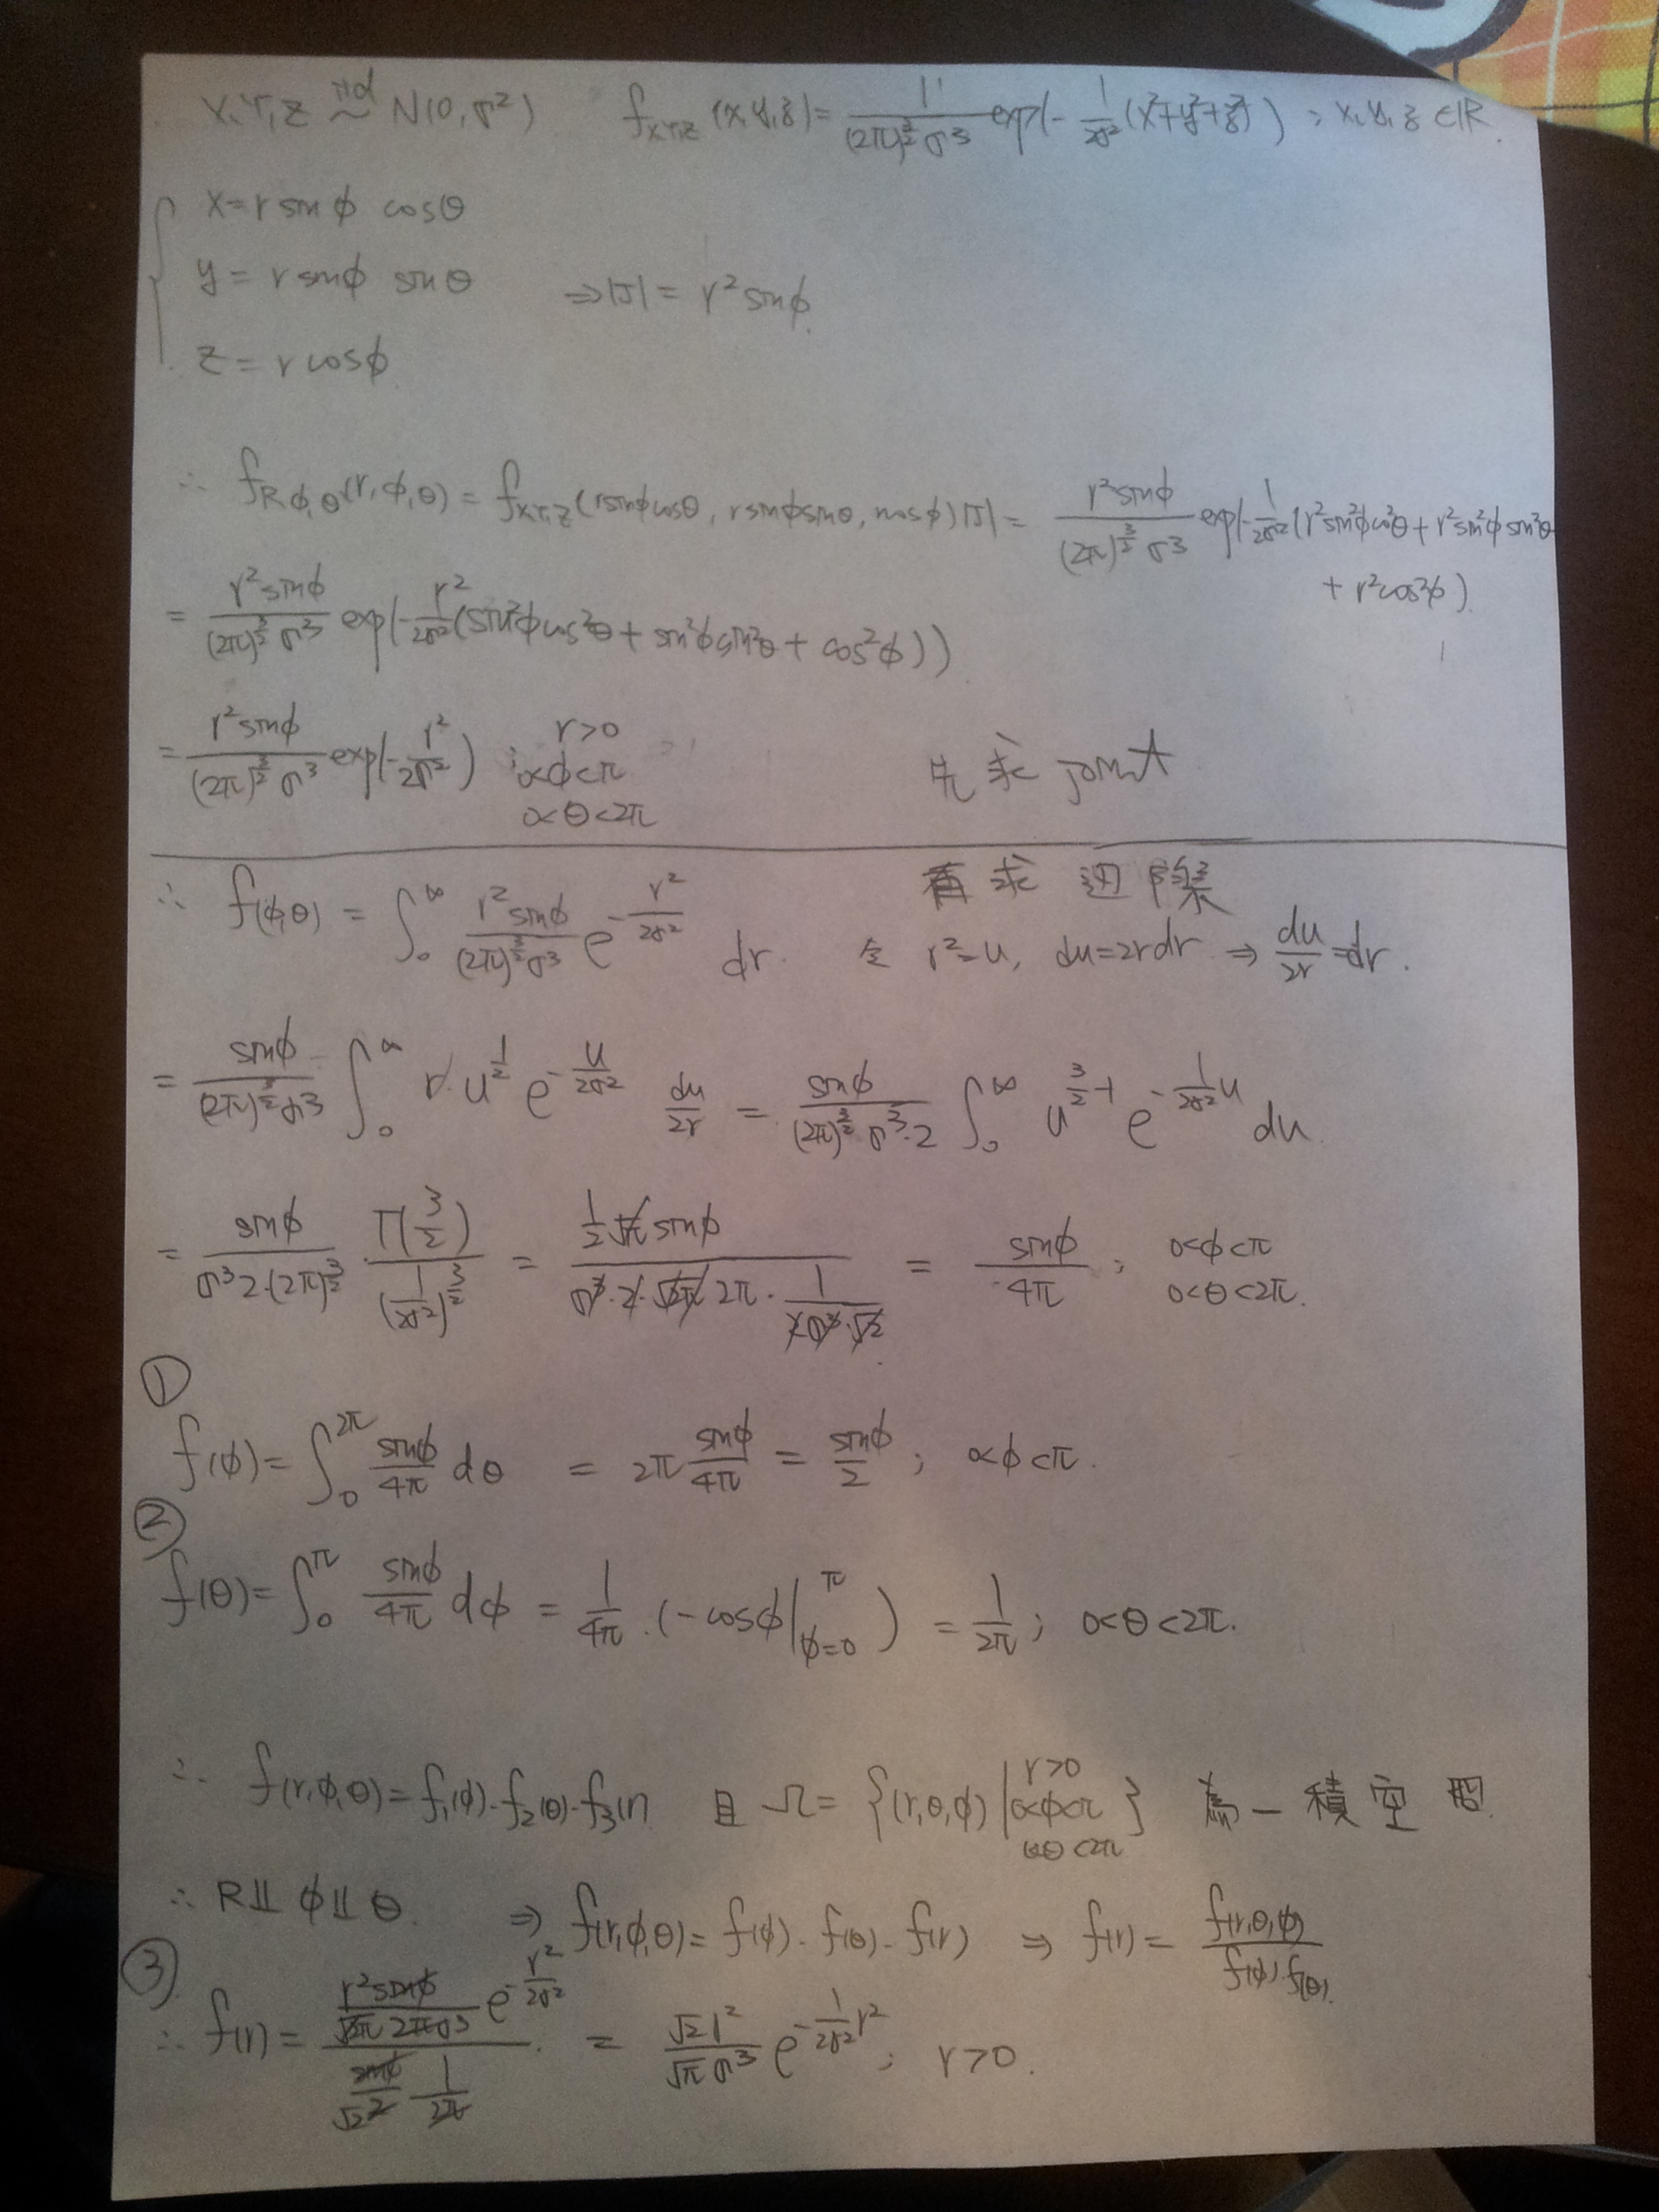 X,Y,Z iid ~ N(0,σ²)  f_{X,Y,Z}(x,y,z) = 1/((2π)^{3/2} σ³) exp(-1/(2σ²) (x²+y²+z²)) ; x,y,z ∈ ℝ.
{ x = r sinφ cosθ
y = r sinφ sinθ  ⇒ |J| = r² sinφ.
z = r cosφ
∴ f_{R,φ,θ}(r,φ,θ) = f_{X,Y,Z}(r sinφ cosθ, r sinφ sinθ, r cosφ) |J| = r² sinφ/((2π)^{3/2} σ³) exp(-1/(2σ²) (r² sin²φ cos²θ + r² sin²φ sin²θ
+ r² cos²φ)
= r² sinφ/((2π)^{3/2} σ³) exp(-r²/(2σ²) (sin²φ cos²θ + sin²φ sin²θ + cos²φ))
= r² sinφ/((2π)^{3/2} σ³) exp(-r²/(2σ²)) ; r>0 0<φ<π 0<θ<2π  先求 joint
∴ f(φ,θ) = ∫_0^∞ r² sinφ/((2π)^{3/2} σ³) e^{-r²/(2σ²)} dr.  再求 边際 令 r²=u, du=2rdr ⇒ du/2r = dr.
= sinφ/((2π)^{3/2} σ³) ∫_0^∞ r·u^{1/2} e^{-u/(2σ²)} du/2r = sinφ/((2π)^{3/2} σ³·2) ∫_0^∞ u^{3/2-1} e^{-1/(2σ²) u} du
= sinφ/(σ³ 2·(2π)^{3/2}) Γ(3/2)/(1/(2σ²))^{3/2} = (1/2 √π sinφ)/(σ³·2·√(2π) 2π · 1/(2σ³·√2)) = sinφ/4π ; 0<φ<π 0<θ<2π.
①
f(φ) = ∫_0^{2π} sinφ/4π dθ = 2π sinφ/4π = sinφ/2 ; 0<φ<π.
②
f(θ) = ∫_0^π sinφ/4π dφ = 1/4π · (-cosφ|_{φ=0}^π) = 1/2π ; 0<θ<2π.
∴ f(r,φ,θ) = f₁(φ)·f₂(θ)·f₃(r) 且 Ω = {(r,θ,φ) | r>0 0<φ<π 0<θ<2π} 為一積空間.
∴ R⫫φ⫫θ. ⇒ f(r,φ,θ) = f(φ)·f(θ)·f(r) ⇒ f(r) = f(r,θ,φ)/(f(φ)·f(θ)).
③
∴ f(r) = (r² sinφ/(√(2π) 2π σ³) e^{-r²/(2σ²)})/(sinφ/(√2 2) 1/2π) = √2 r²/(√π σ³) e^{-1/(2σ²) r²} ; r>0.